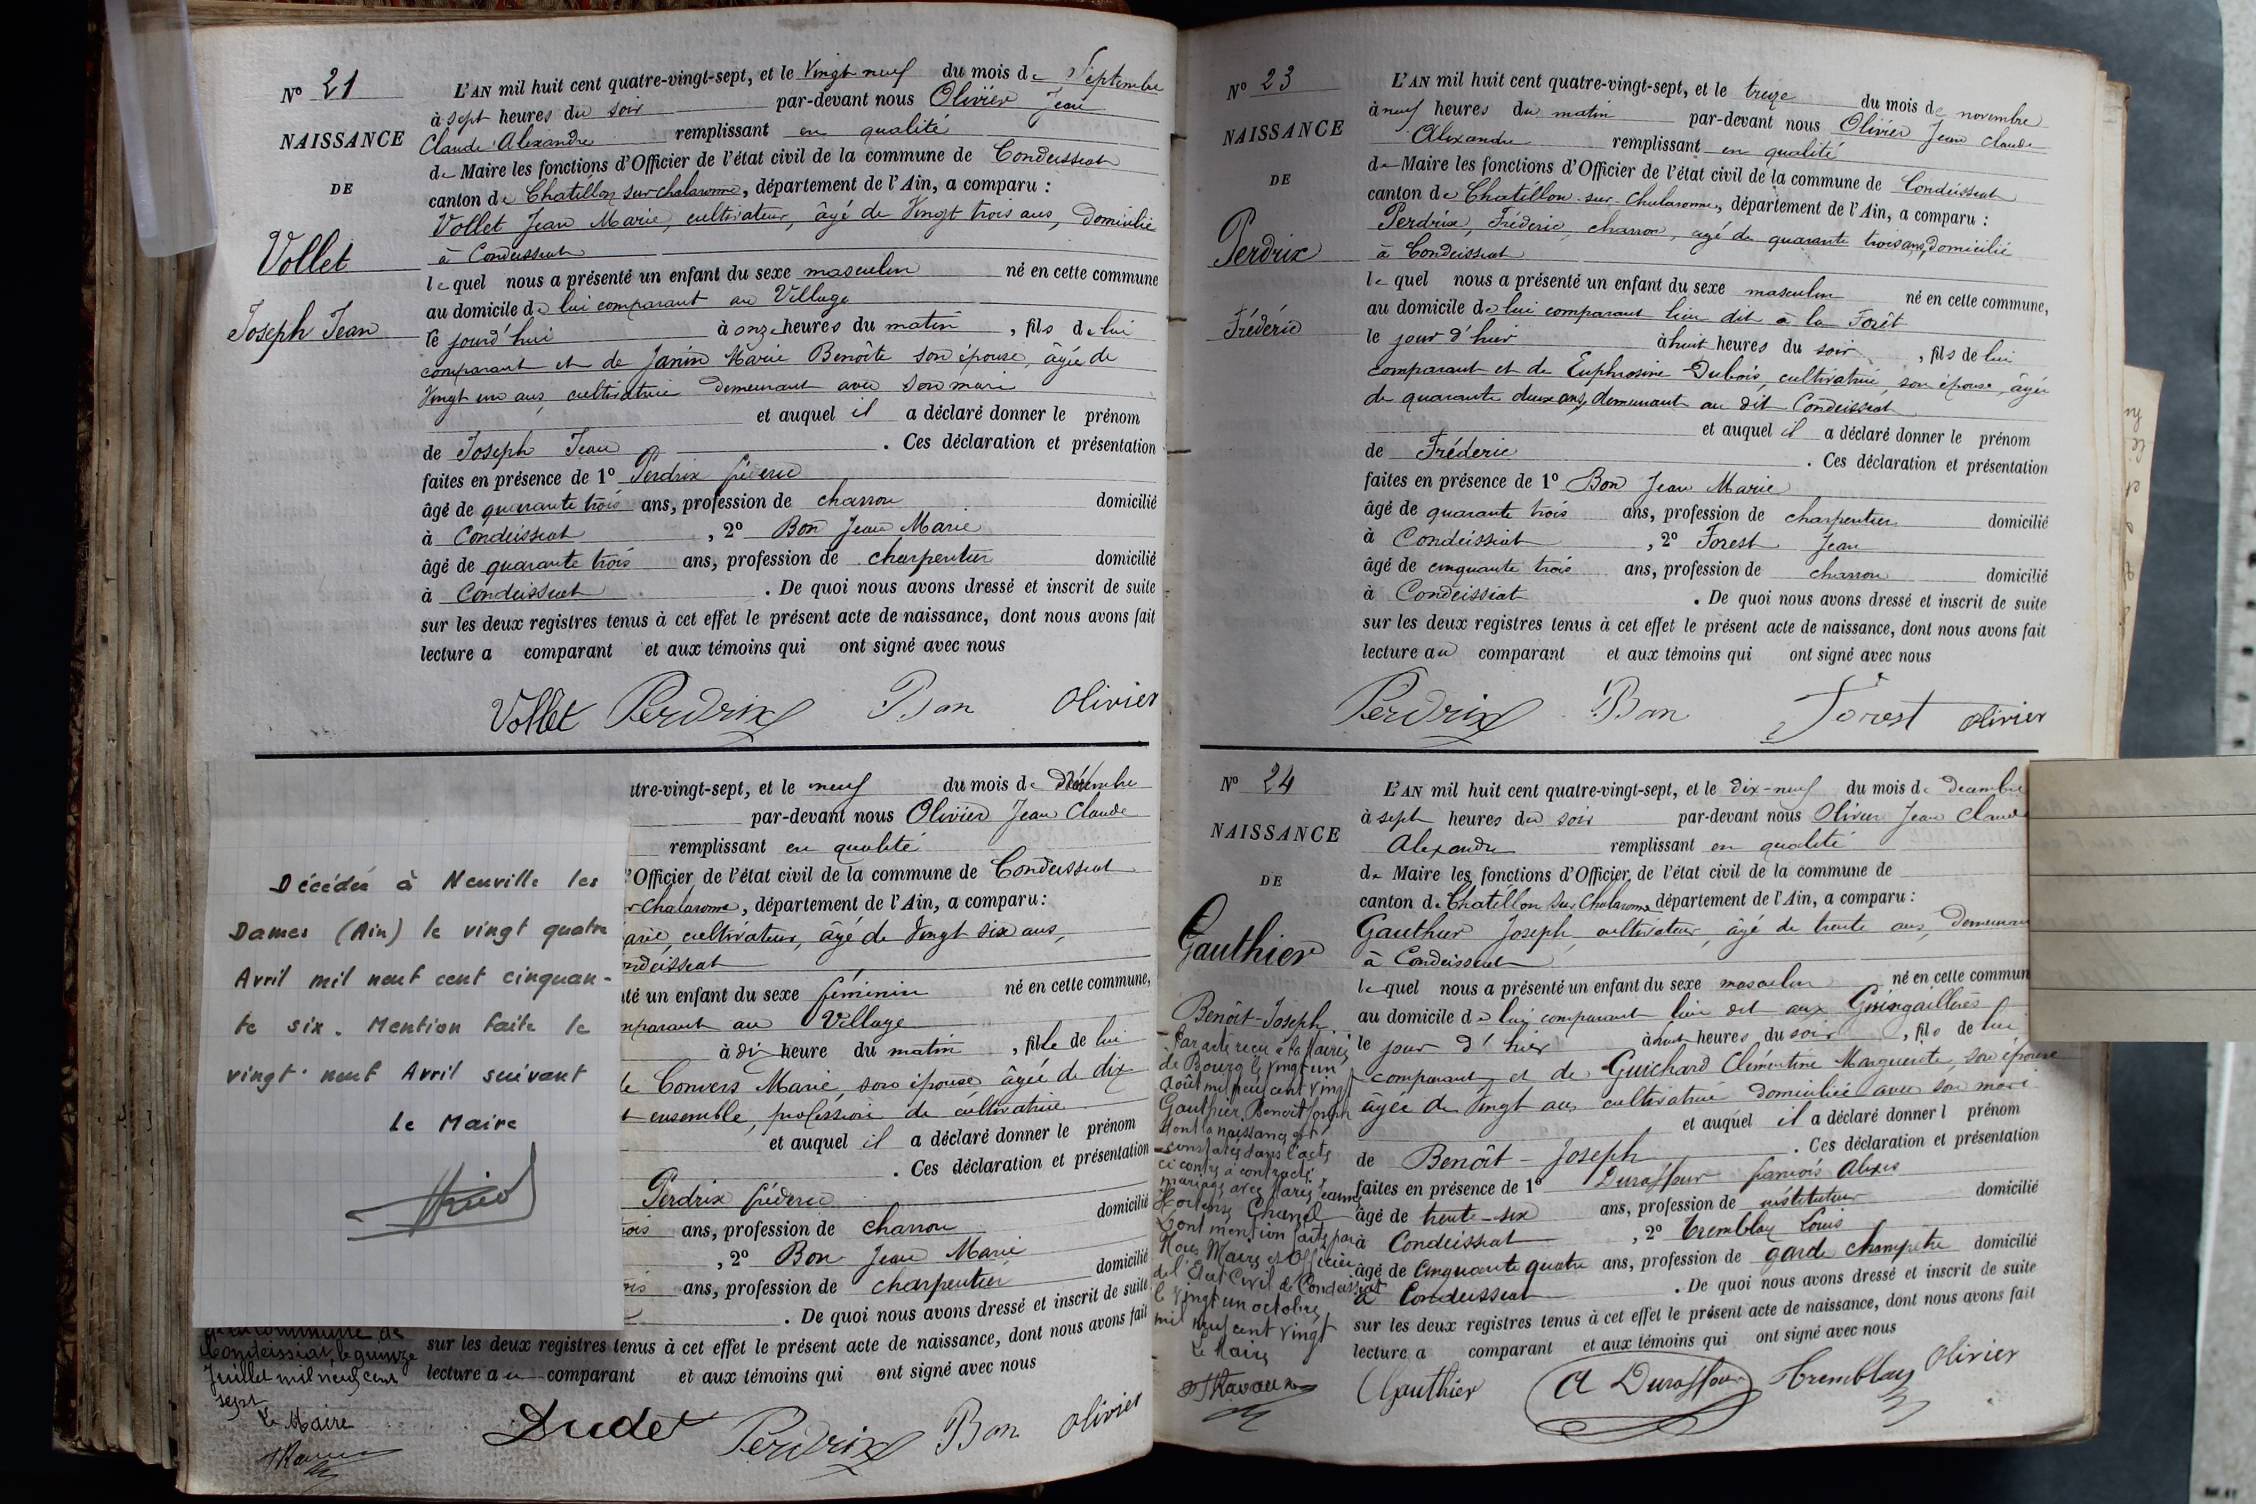 Nº 21
NAISSANCE
DE
Vollet
Joseph Jean
L'AN mil huit cent quatre-vingt-sept, et le Vingt neuf du mois de Septembre
à sept heures du soir par-devant nous Olivier Jean
Claude Alexandre remplissant en qualité
de Maire les fonctions d'Officier de l'état civil de la commune de Condeissiat
canton de Chatillon sur chalaronne, département de l'Ain, a comparu :
Vollet Jean Marie, cultivateur, âgé de Vingt trois ans, domicilié
à Condeissiat
lequel nous a présenté un enfant du sexe masculin né en cette commune
au domicile de lui comparant au Village
le jourd'hui à onze heures du matin, fils de lui
comparant et de Janin Marie Benoîte son épouse, âgée de
Vingt un ans, cultivatrice demeurant avec son mari
et auquel il a déclaré donner le prénom
de Joseph Jean . Ces déclaration et présentation
faites en présence de 1º Perdrix fréderic
âgé de quarante trois ans, profession de charron domicilié
à Condeissiat , 2º Bon Jean Marie
âgé de quarante trois ans, profession de charpentier domicilié
à Condeissiat . De quoi nous avons dressé et inscrit de suite
sur les deux registres tenus à cet effet le présent acte de naissance, dont nous avons fait
lecture a comparant et aux témoins qui ont signé avec nous
Vollet Perdrix Bon Olivier
Décédée à Neuville les
Dames (Ain) le vingt quatre
Avril mil neuf cent cinquan-
te six. Mention faite le
vingt-neuf Avril suivant
le Maire
tre-vingt-sept, et le neuf du mois de Décembre
par-devant nous Olivier Jean Claude
remplissant en qualité
'Officier de l'état civil de la commune de Condeissiat
r chalaronne, département de l'Ain, a comparu :
arie, cultivateur, âgé de Vingt six ans,
ndeissiat
té un enfant du sexe féminin né en cette commune,
mparant au Village
à dix heure du matin, fille de lui
de Convers Marie, son épouse âgée de dix
t ensemble, profession de cultivatrice
et auquel il a déclaré donner le prénom
. Ces déclaration et présentation
Perdrix fréderic
rois ans, profession de charron domicilié
, 2º Bon Jean Marie
ois ans, profession de charpentier domicilié
. De quoi nous avons dressé et inscrit de suite
sur les deux registres tenus à cet effet le présent acte de naissance, dont nous avons fait
lecture au comparant et aux témoins qui ont signé avec nous
commune de
Condeissiat, le quinze
Juillet mil neuf cent
sept
Le Maire
Dudet Perdrix Bon Olivier
Nº 23
NAISSANCE
DE
Perdrix
Fréderic
L'AN mil huit cent quatre-vingt-sept, et le treize du mois de novembre
à neuf heures du matin par-devant nous Olivier Jean Claude
Alexandre remplissant en qualité
de Maire les fonctions d'Officier de l'état civil de la commune de Condeissiat
canton de Chatillon-sur-Chalaronne, département de l'Ain, a comparu :
Perdrix, Fréderic, charron, agé de quarante trois ans, domicilié
à Condeissiat
lequel nous a présenté un enfant du sexe masculin né en cette commune,
au domicile de lui comparant lieu dit à la Forêt
le jour d'hier à huit heures du soir, fils de lui
comparant et de Euphrosine Dubois, cultivatrice, son épouse, âgée
de quarante deux ans, demeurant au dit Condeissiat
et auquel il a déclaré donner le prénom
de Fréderic . Ces déclaration et présentation
faites en présence de 1º Bon Jean Marie
âgé de quarante trois ans, profession de charpentier domicilié
à Condeissiat , 2º Forest Jean
âgé de cinquante trois ans, profession de charron domicilié
à Condeissiat . De quoi nous avons dressé et inscrit de suite
sur les deux registres tenus à cet effet le présent acte de naissance, dont nous avons fait
lecture au comparant et aux témoins qui ont signé avec nous
Perdrix Bon Forest Olivier
Nº 24
NAISSANCE
DE
Gauthier
Benoît-Joseph
Par acte reçu à la Mairie
de Bourg le vingt un
Août mil neuf cent vingt
Gauthier Benoit Joseph
dont la naissance est
constatée dans l'acte
ci contre a contracté
mariage avec Marie Jeanne
Hortense
Dont mention faite par
Nous Maire et Officier
de l'Etat Civil de Condeissiat
le vingt un octobre
mil neuf cent vingt
Le Maire
L'AN mil huit cent quatre-vingt-sept, et le dix-neuf du mois de decembre
à sept heures du soir par-devant nous Olivier Jean Claude
Alexandre remplissant en qualité
de Maire les fonctions d'Officier de l'état civil de la commune de
canton de Chatillon sur Chalaronne département de l'Ain, a comparu :
Gauthier Joseph, cultivateur, âgé de trente ans, demeurant
à Condeissiat
lequel nous a présenté un enfant du sexe masculin né en cette commun
au domicile de lui comparant lieu dit aux
le jour d'hier à huit heures du soir, fils de lui
comparant et de Guichard Clémentine Marguerite, son épouse
âgée de Vingt ans cultivatrice domiciliée avec son mari
et auquel il a déclaré donner l prénom
de Benoît-Joseph . Ces déclaration et présentation
faites en présence de 1º Duraffour francois Alexis
âgé de trente-six ans, profession de instituteur domicilié
à Condeissiat , 2º Tremblay Louis
âgé de Cinquante quatre ans, profession de garde champêtre domicilié
à Condeissiat . De quoi nous avons dressé et inscrit de suite
sur les deux registres tenus à cet effet le présent acte de naissance, dont nous avons fait
lecture a comparant et aux témoins qui ont signé avec nous
Gauthier A Duraffour Tremblay Olivier